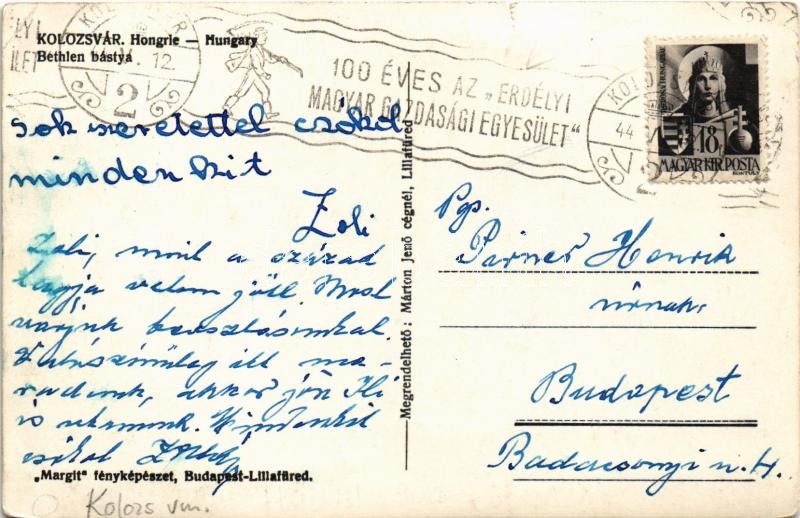 KOLOZSVÁR. Hongrie — Hungary
Bethlen bástya
LYI
ILET
12
2
100 ÉVES AZ „ERDÉLYI
MAGYAR GAZDASÁGI EGYESÜLET"
KOLO
44
2
18f
MAGYAR KIR. POSTA
sok szeretettel csókol
mindenkit
Zoli
Zoli, mint a század
tagja velem jött. Most
várjuk beosztásunkat.
Valószinüleg itt ma-
radunk, akkor jön Ili
is utánunk. Mindenkit
csókol
Megrendelhető: Márton Jenő cégnél, Lillafüred.
Pgs.
Pirnes Henrik
úrnak,
Budapest
Badacsonyi u. 4.
„Margit" fényképészet, Budapest-Lillafüred.
Kolozs vm.